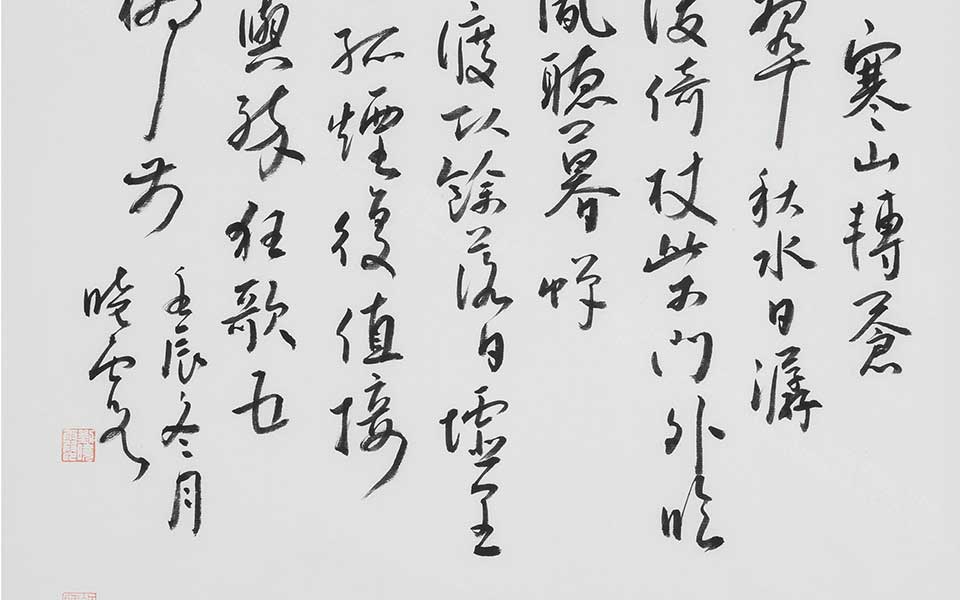 寒山轉蒼
翠秋水日潺
湲倚杖柴門外臨
風聽暮蟬
渡頭餘落日墟里
孤煙復值接
輿醉狂歌五
柳前
壬辰冬月
曉雲